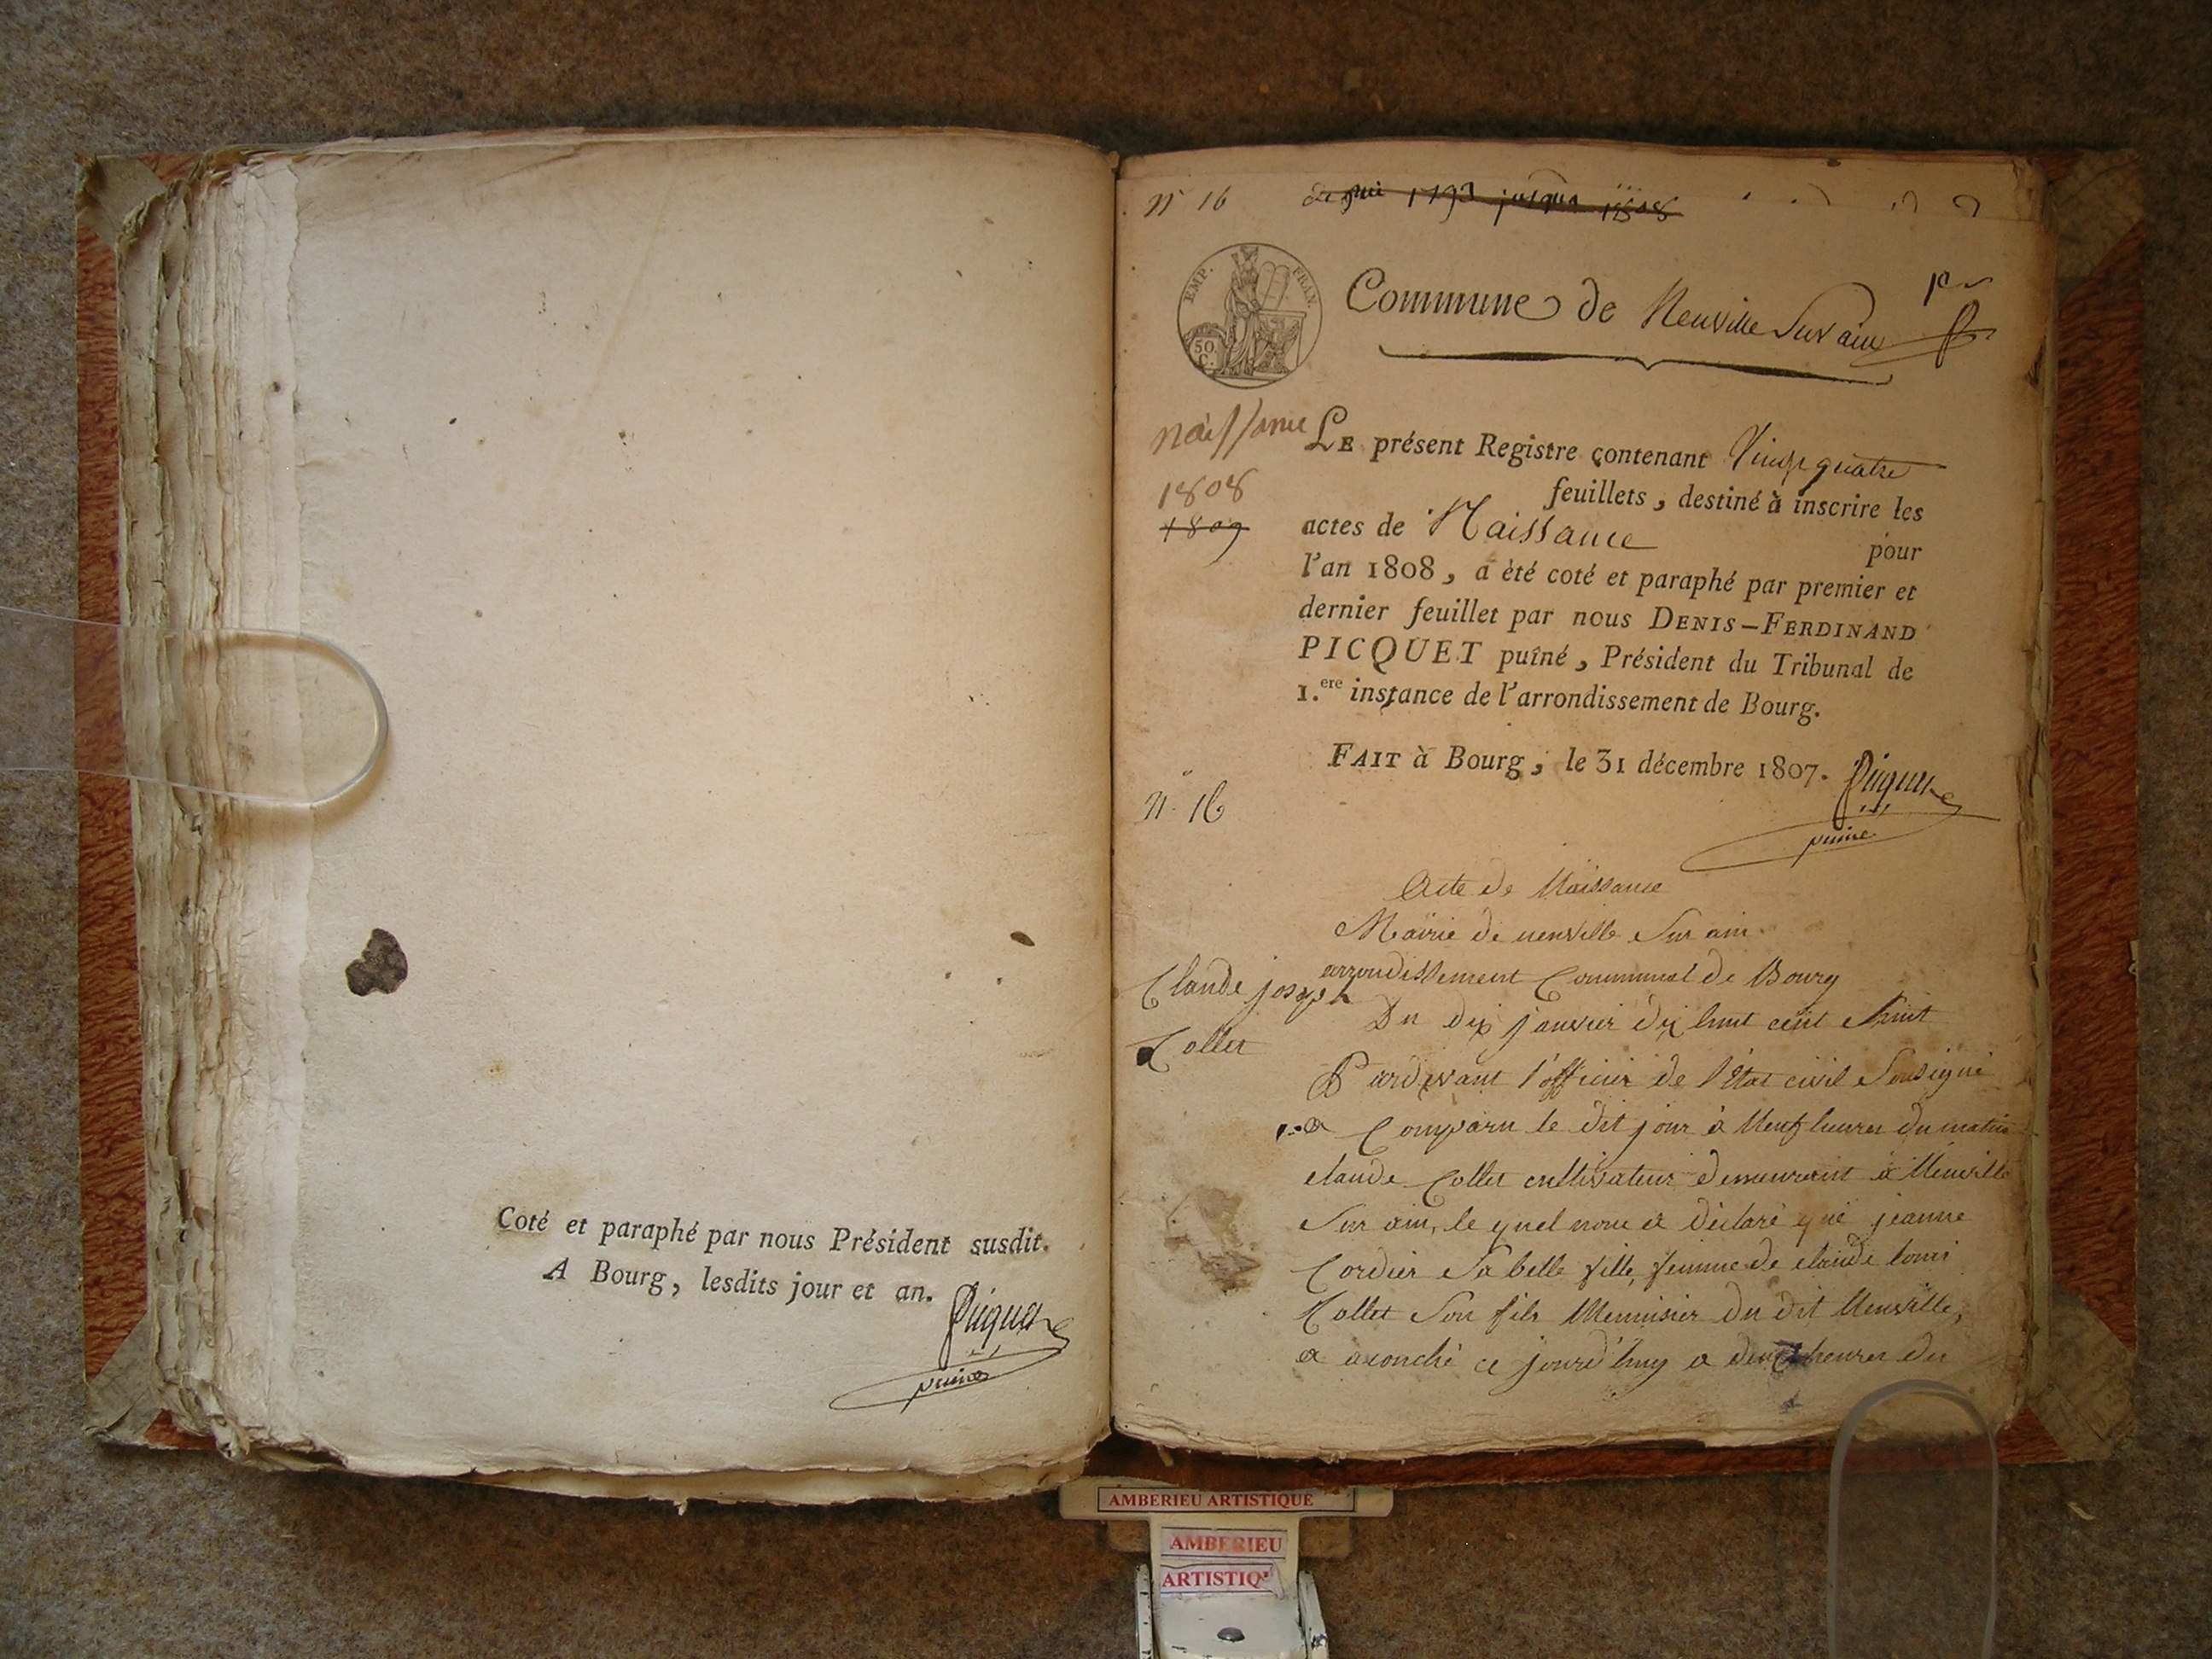 Coté et paraphé par nous Président susdit.
A Bourg, lesdits jour et an.
Picquet
puiné
n° 16
depuis 1793 jusqua 1808
EMP. FRAN.
50 C.
Commune de Neuville Sur ain
1er
naissance
1808
1809
LE présent Registre contenant Vingt quatre
feuillets, destiné à inscrire les
actes de Naissance pour
l'an 1808, a été coté et paraphé par premier et
dernier feuillet par nous DENIS-FERDINAND
PICQUET puîné, Président du Tribunal de
1.ere instance de l'arrondissement de Bourg.
FAIT à Bourg, le 31 décembre 1807.
Picquet
puiné
n° 16
Acte de Naissance
Mairie de neuville Sur ain
arrondissement Communal de Bourg
Claude joseph
Collet
Du dix janvier dix huit cent huit
Pardevant l'officier de l'Etat civil Sousigné
a Comparu le dit jour à Neuf heures du matin
claude Collet cultivateur demeurant à Neuville
Sur ain, le quel nous a déclaré que jeanne
Cordier Sa belle fille, femme de claude louis
Collet Son fils Menuisier du dit Neuville,
a acouché ce jourd'huy a deux heures du
AMBERIEU ARTISTIQUE
AMBERIEU
ARTISTIQ